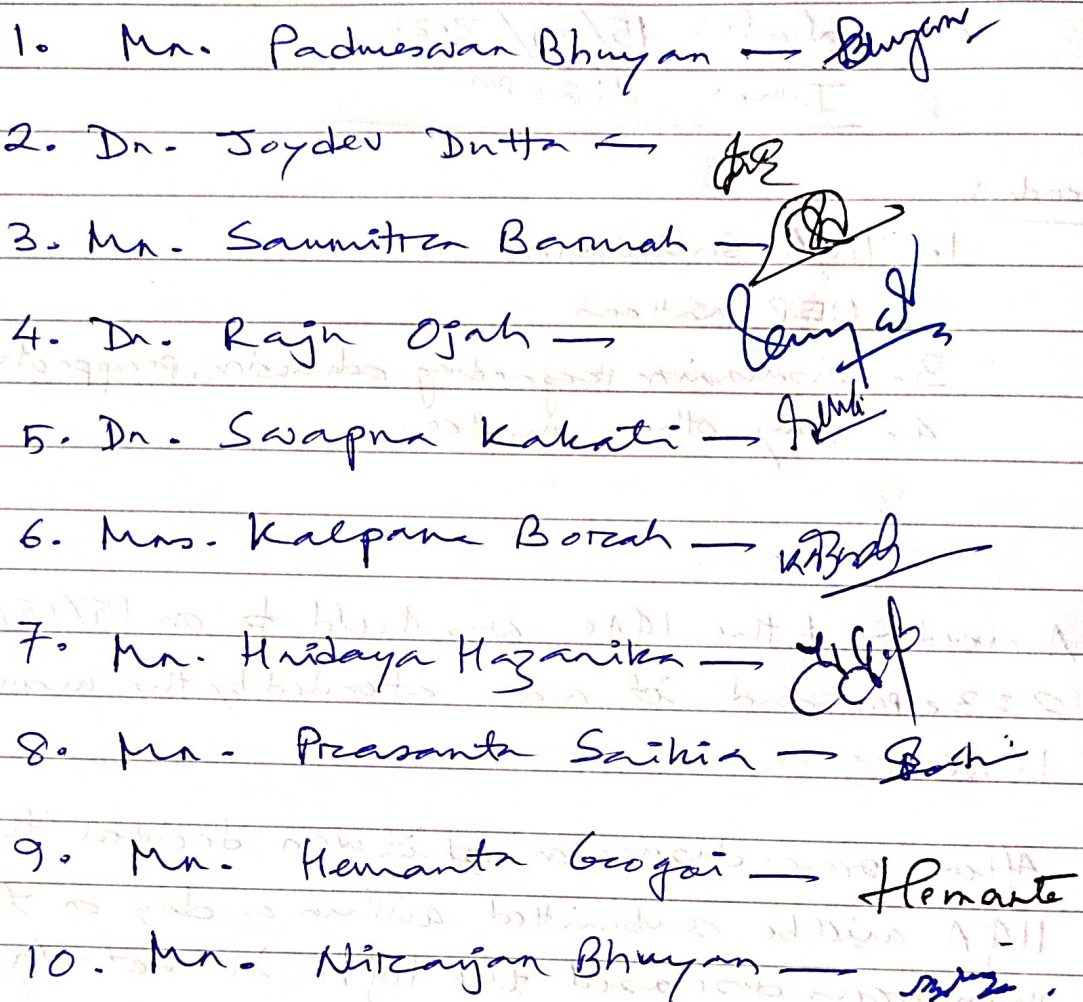 1. Mr. Padmeswar Bhuyan — Bhuyan
2. Dr. Joydev Dutta —
3. Mr. Saumitra Baruah —
4. Dr. Raju Ojah —
5. Dr. Swapna Kakati —
6. Mrs. Kalpana Borah — KBorah
7. Mr. Hridaya Hazarika —
8. Mr. Prasanta Saikia —
9. Mr. Hemanta Gogoi — Hemanta
10. Mr. Niranjan Bhuyan —